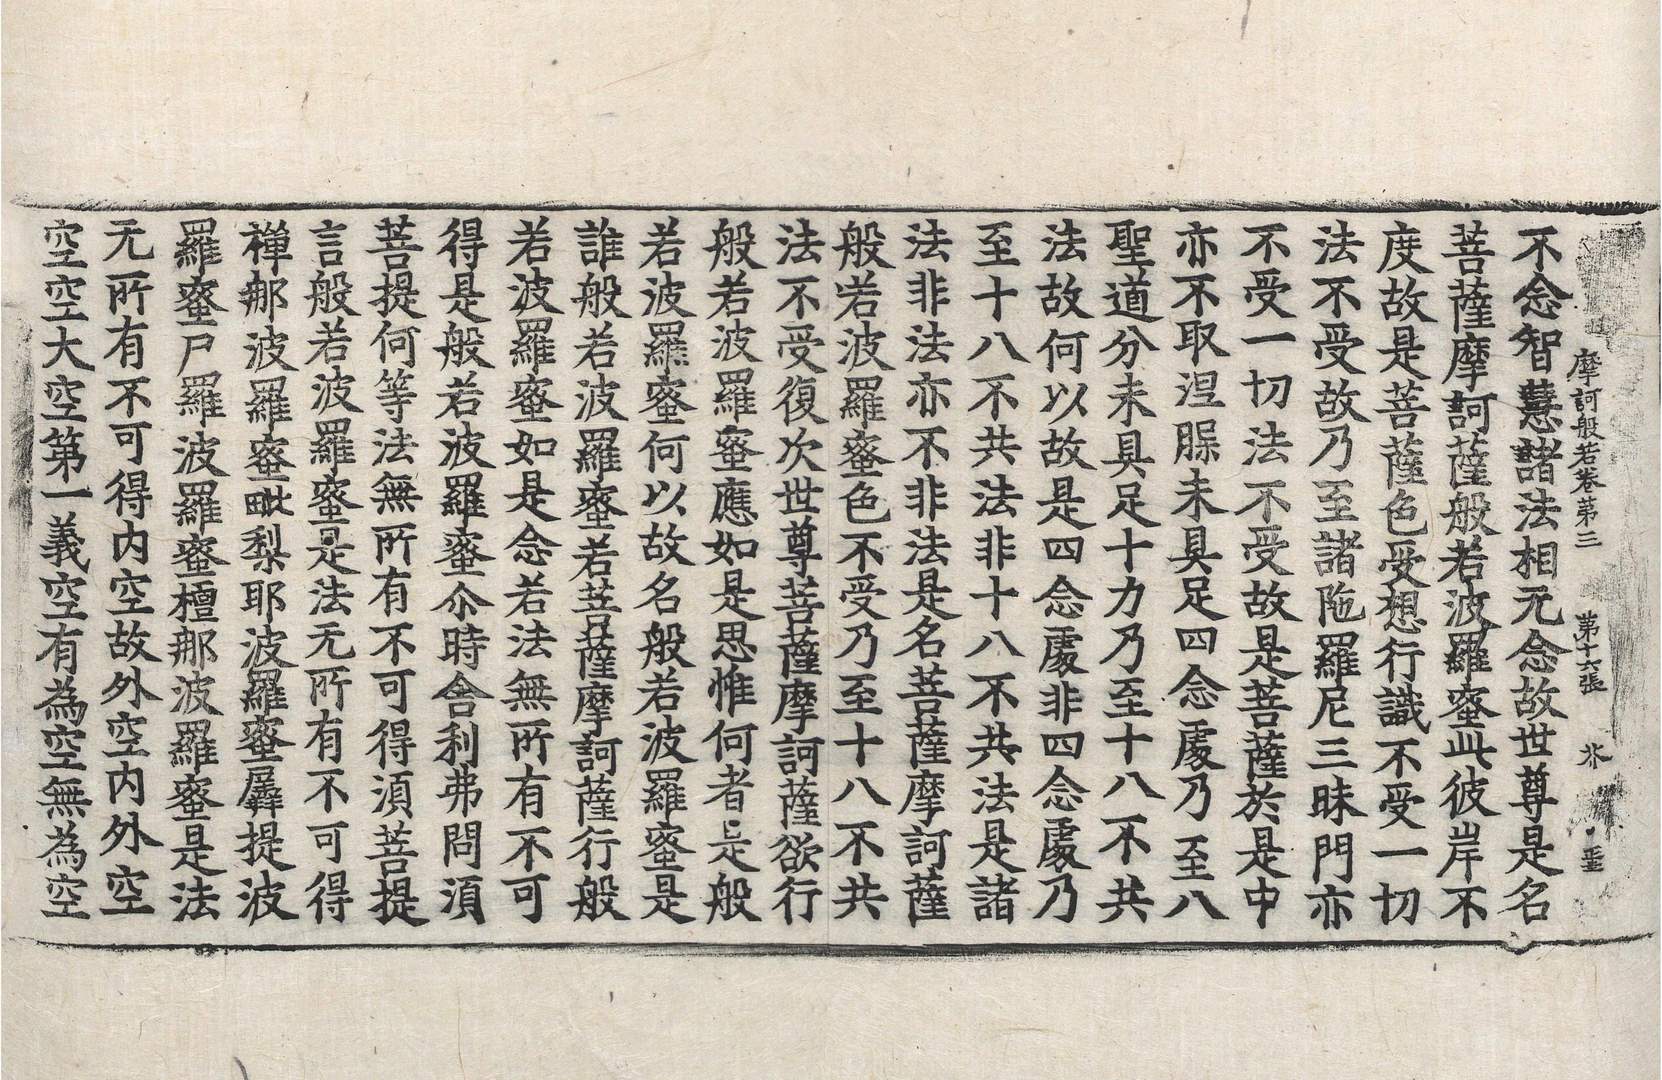 摩訶般若卷第三 第十六張 芥
不念智慧諸法相无念故世尊是名
菩薩摩訶薩般若波羅蜜此彼岸不
度故是菩薩色受想行識不受一切
法不受故乃至諸陁羅尼三昧門亦
不受一切法不受故是菩薩於是中
亦不取涅槃未具足四念處乃至八
聖道分未具足十力乃至十八不共
法故何以故是四念處非四念處乃
至十八不共法非十八不共法是諸
法非法亦不非法是名菩薩摩訶薩
般若波羅蜜色不受乃至十八不共
法不受復次世尊菩薩摩訶薩欲行
般若波羅蜜應如是思惟何者是般
若波羅蜜何以故名般若波羅蜜是
誰般若波羅蜜若菩薩摩訶薩行般
若波羅蜜如是念若法無所有不可
得是般若波羅蜜尒時舍利弗問須
菩提何等法無所有不可得須菩提
言般若波羅蜜是法无所有不可得
禪那波羅蜜毗梨耶波羅蜜羼提波
羅蜜尸羅波羅蜜檀那波羅蜜是法
无所有不可得内空故外空内外空
空空大空第一義空有為空無為空